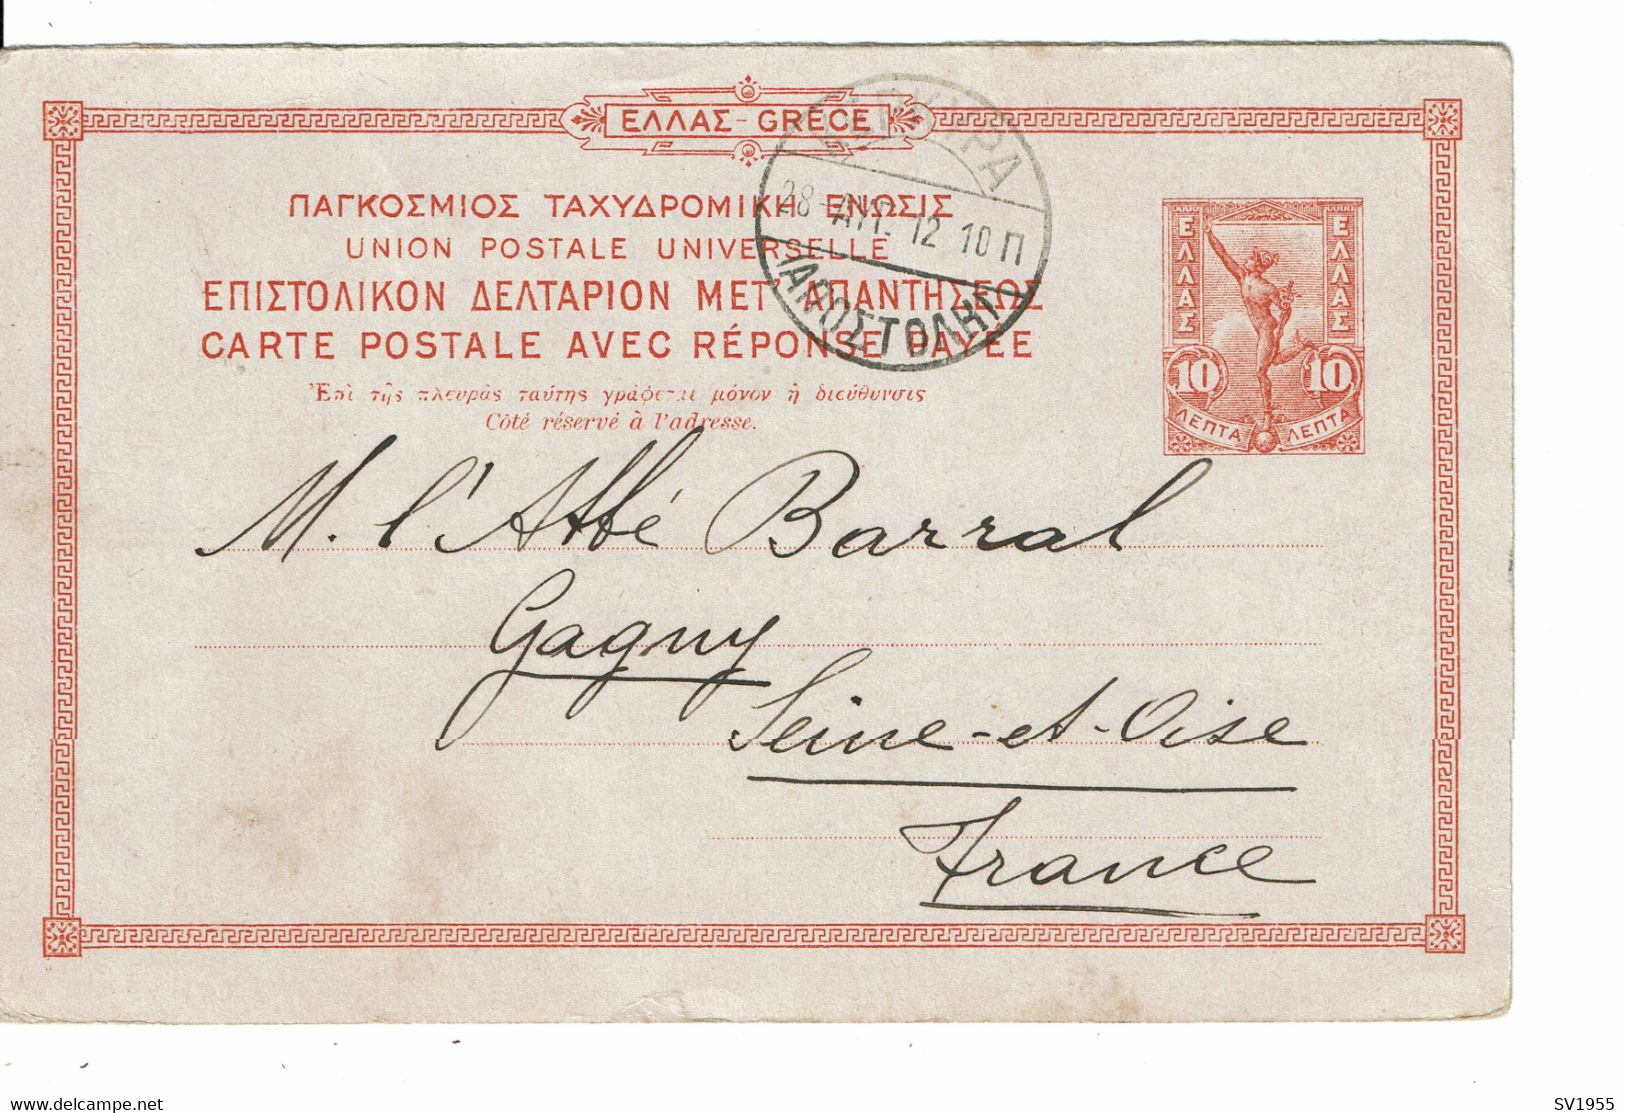 ΕΛΛΑΣ - GRÈCE
ΠΑΓΚΟΣΜΙΟΣ ΤΑΧΥΔΡΟΜΙΚΗ ΕΝΩΣΙΣ
UNION POSTALE UNIVERSELLE
ΕΠΙΣΤΟΛΙΚΟΝ ΔΕΛΤΑΡΙΟΝ ΜΕΤ' ΑΠΑΝΤΗΣΕΩΣ
CARTE POSTALE AVEC RÉPONSE PAYÉE
Ἐπὶ τῆς πλευρᾶς ταύτης γράφεται μόνον ἡ διεύθυνσις
Côté réservé à l'adresse.
ΚΕΡΚΥΡΑ
28-ΑΠΡ. 12 10 Π
ΕΛΛΑΣ
ΕΛΛΑΣ
10
10
ΛΕΠΤΑ
ΛΕΠΤΑ
M. l'Abbé Barral
Gagny
Seine-et-Oise
France
delcampe.net
SV1955